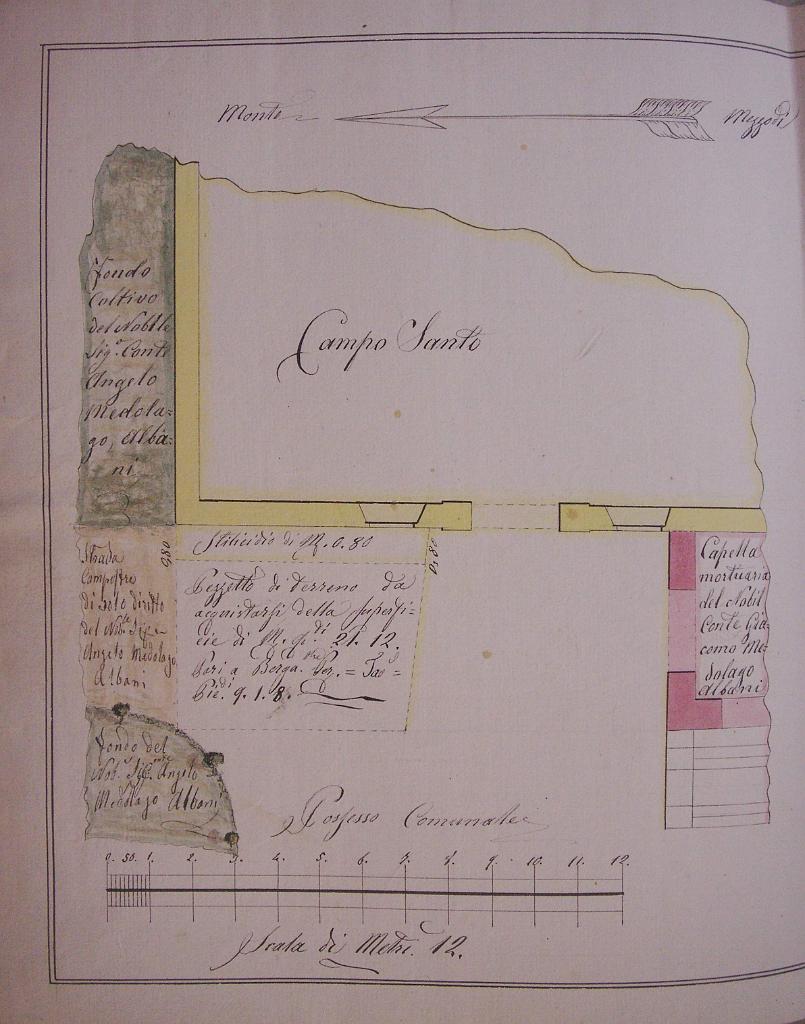 Monte
Mezzodì
Fondo
Coltivo
del Nobile
Sigr. Conte
Angelo
Medola=
go, Alba=
ni
Campo Santo
0,80
Stilicidio di M. 0.80
0,80
Strada
Campestre
di solo diritto
del Nobe. Sigr.
Angelo Medolago
Albani
Pezzetto di terreno da
acquistarsi della superfi=
cie di M. qi. di 21. 12.
pari a Berga.
Pie. di 9. 1. 8.
Capella
mortuaria
del Nobil
Conte Gia=
como Me=
dolago
Albani
Fondo del
Nobe. Sigr. Angelo
Medolago Albani
Possesso Comunale
0. 50. 1. 2. 3. 4. 5. 6. 7. 8. 9. 10. 11. 12.
Scala di Metri. 12.